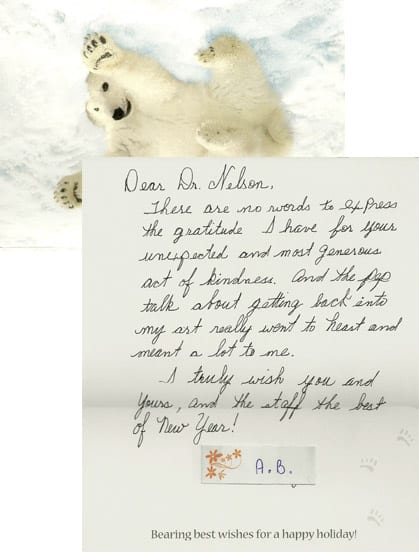 Dear Dr. Nelson,
There are no words to express
the gratitude I have for your
unexpected and most generous
act of kindness. And the pep
talk about getting back into
my art really went to heart and
meant a lot to me.
I truly wish you and
yours, and the staff the best
of New Year!
A.B.
Bearing best wishes for a happy holiday!